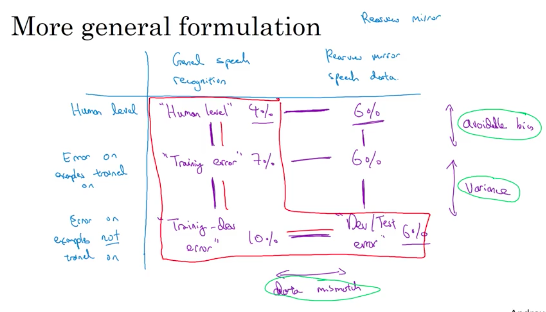 More general formulation
Rearview mirror
General speech
recognition
Rearview mirror
speech data
Human level
"Human level" 4%
6%
avoidable bias
Error on
examples trained
on
"Training error" 7%
6%
Variance
Error on
examples not
trained on
"Training-dev
error" 10%
"Dev/Test
error" 6%
data mismatch
Andrew